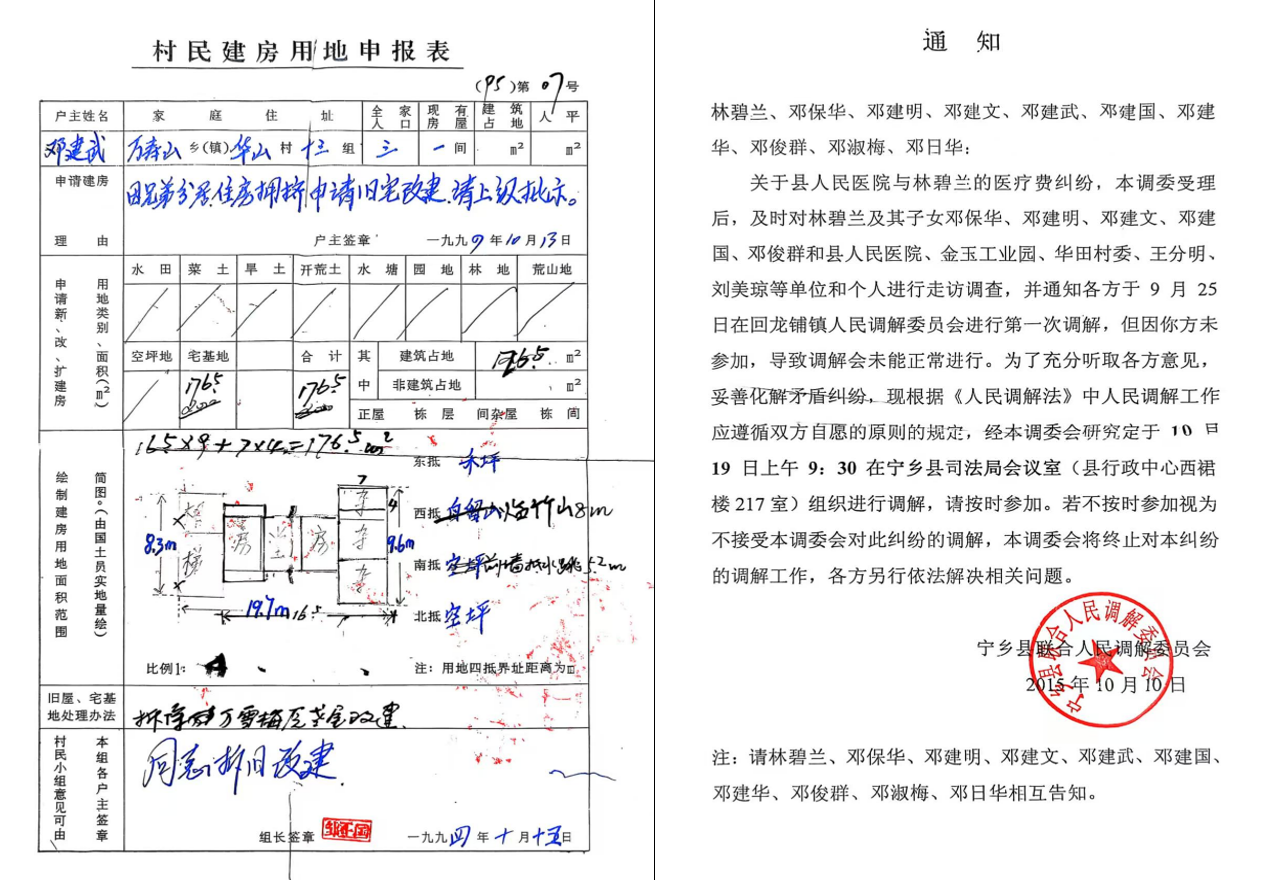 村民建房用地申报表
(95)第07号
户主姓名 家庭住址 全家人口 现有房屋 建筑占地 人平
邓建武 万寿山乡(镇)华山村十三组 三 一间 m² m²
申请建房理由
因兄弟分居,住房拥挤,申请旧宅改建,请上级批示。
户主签章 一九九 年10月13日
申请新、改、扩建房用地类别、面积(m²)
水田 菜土 旱土 开荒土 水塘 园地 林地 荒山地
空坪地 宅基地 合计 其中 建筑占地 176.5 m²
176.5 176.5 非建筑占地 m²
正屋 栋 层 间杂屋 栋 间
绘制建房用地面积范围简图。(由国土员实地量绘)
16.5×9+7×4=176.5m²
东抵 禾坪
7
4
西抵
8.3m 房 房 杂 杂 杂 9.6m
南抵
19.7m 16.5
北抵 空坪
比例1: 注:用地四抵界址距离为m
旧屋、宅基地处理办法
村民小组意见可由本组各户主签章
同意拆旧改建.
组长签章 一九九四年十月十五日
通 知
林碧兰、邓保华、邓建明、邓建文、邓建武、邓建国、邓建
华、邓俊群、邓淑梅、邓日华:
关于县人民医院与林碧兰的医疗费纠纷,本调委受理
后,及时对林碧兰及其子女邓保华、邓建明、邓建文、邓建
国、邓俊群和县人民医院、金玉工业园、华田村委、王分明、
刘美琼等单位和个人进行走访调查,并通知各方于 9 月 25
日在回龙铺镇人民调解委员会进行第一次调解,但因你方未
参加,导致调解会未能正常进行。为了充分听取各方意见,
妥善化解矛盾纠纷,现根据《人民调解法》中人民调解工作
应遵循双方自愿的原则的规定,经本调委会研究定于 10 月
19 日上午 9:30 在宁乡县司法局会议室(县行政中心西裙
楼 217 室)组织进行调解,请按时参加。若不按时参加视为
不接受本调委会对此纠纷的调解,本调委会将终止对本纠纷
的调解工作,各方另行依法解决相关问题。
宁乡县联合人民调解委员会
2015 年 10 月 10 日
宁乡县联合人民调解委员会
注:请林碧兰、邓保华、邓建明、邓建文、邓建武、邓建国、
邓建华、邓俊群、邓淑梅、邓日华相互告知。